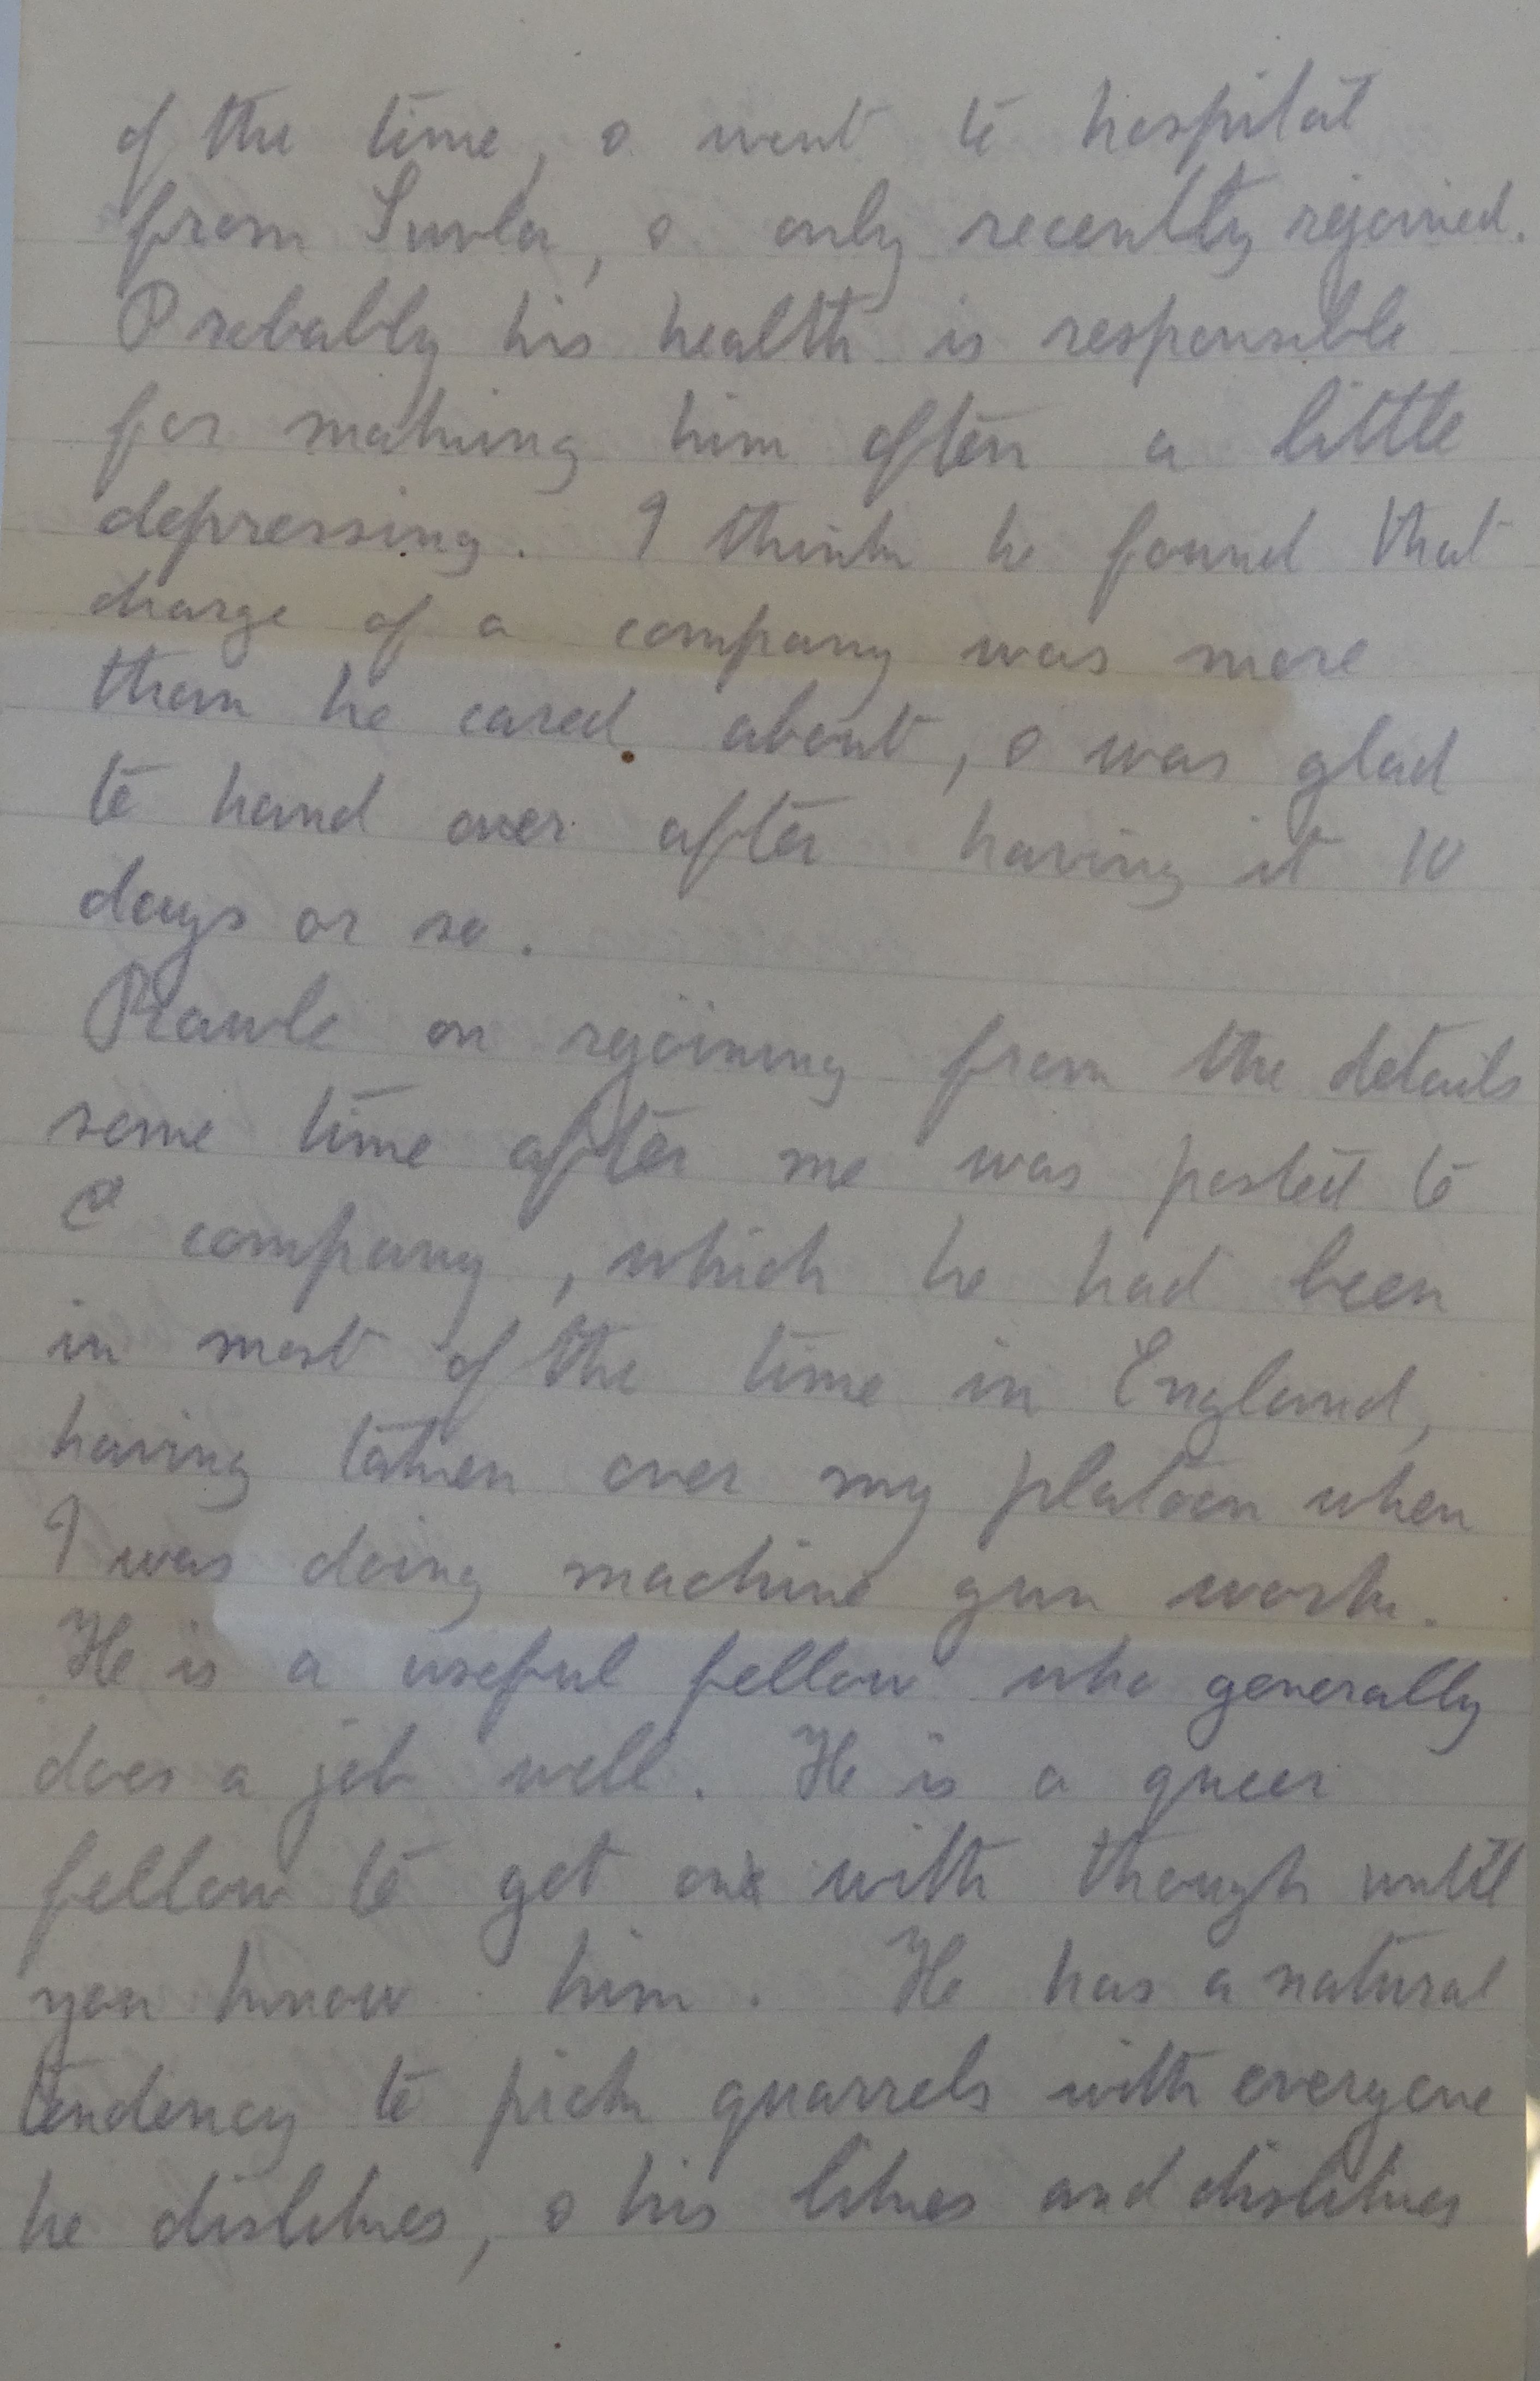 of the time, & went to hospital
from Suvla, & only recently rejoined.
Probably his health is responsible
for making him often a little
depressing. I think he found that
charge of a company was more
than he cared about, & was glad
to hand over after having it 10
days or so.
Rawle on rejoining from the details
some time after me was posted to
company, which he had been
in most of the time in England,
having taken over my platoon when
I was doing machine gun work.
He is a useful fellow who generally
does a job well. He is a queer
fellow to get on with though until
you know him. He has a natural
tendency to pick quarrels with everyone
he dislikes, & his likes and dislikes